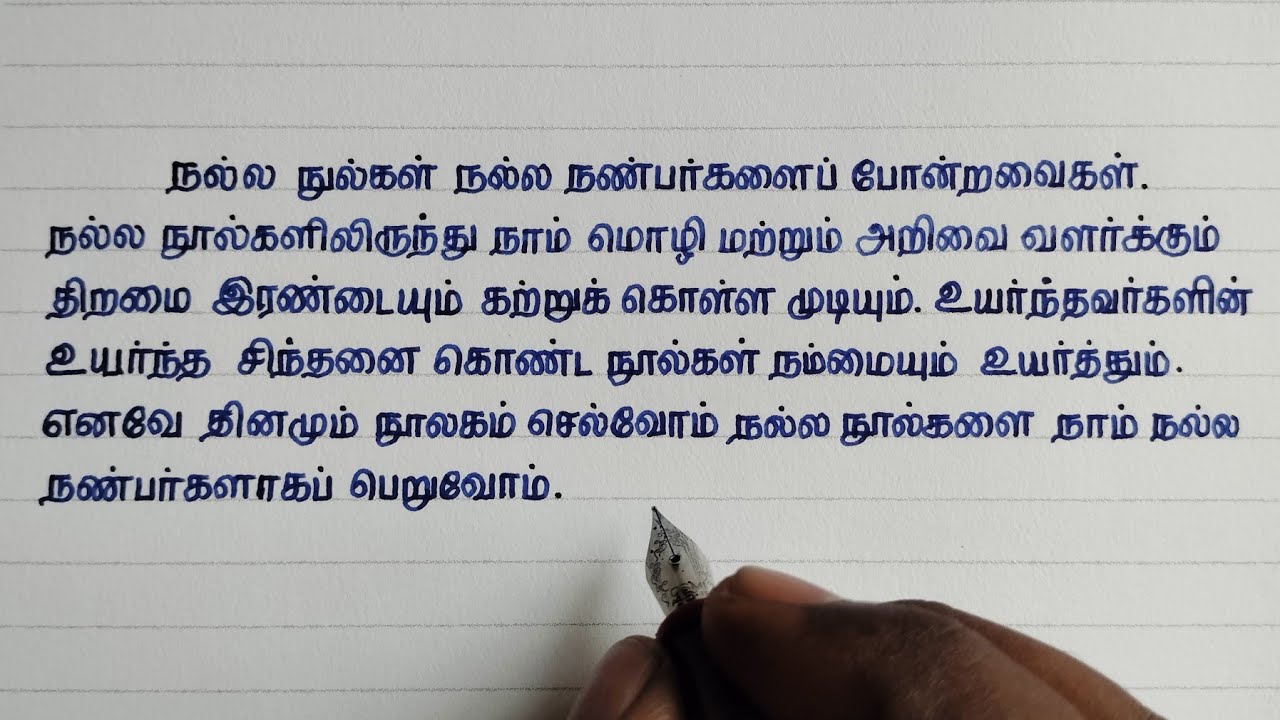 நல்ல நுல்கள் நல்ல நண்பர்களைப் போன்றவைகள்.
நல்ல நூல்களிலிருந்து நாம் மொழி மற்றும் அறிவை வளர்க்கும்
திறமை இரண்டையும் கற்றுக் கொள்ள முடியும். உயர்ந்தவர்களின்
உயர்ந்த சிந்தனை கொண்ட நூல்கள் நம்மையும் உயர்த்தும்.
எனவே தினமும் நூலகம் செல்வோம் நல்ல நூல்களை நாம் நல்ல
நண்பர்களாகப் பெறுவோம்.